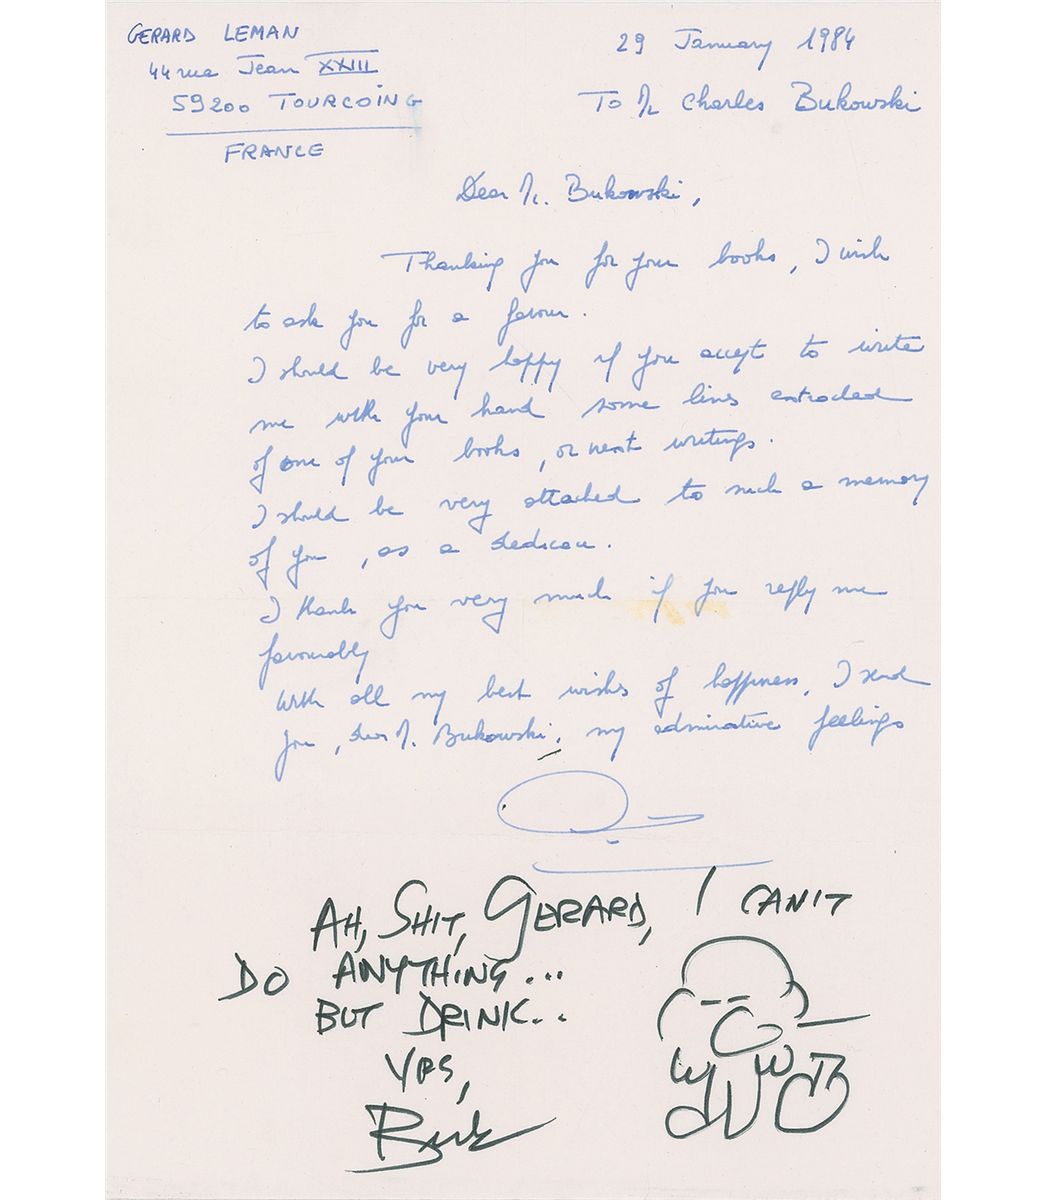 GERARD LEMAN
44 rue Jean XXIII
59200 TOURCOING
FRANCE
29 January 1984
To Mr Charles Bukowski
Dear Mr. Bukowski,
Thanking you for your books, I wish
to ask you for a favour.
I should be very happy if you accept to write
me with your hand some lines extracted
of one of your books, or next writings.
I should be very attached to such a memory
of you, as a
I thank you very much if you reply me
favourably
With all my best wishes of happiness, I send
you, dear Mr. Bukowski, my admirative feelings
AH, SHIT, GERARD, I CAN'T
DO ANYTHING...
BUT DRINK..
YES,
Buk